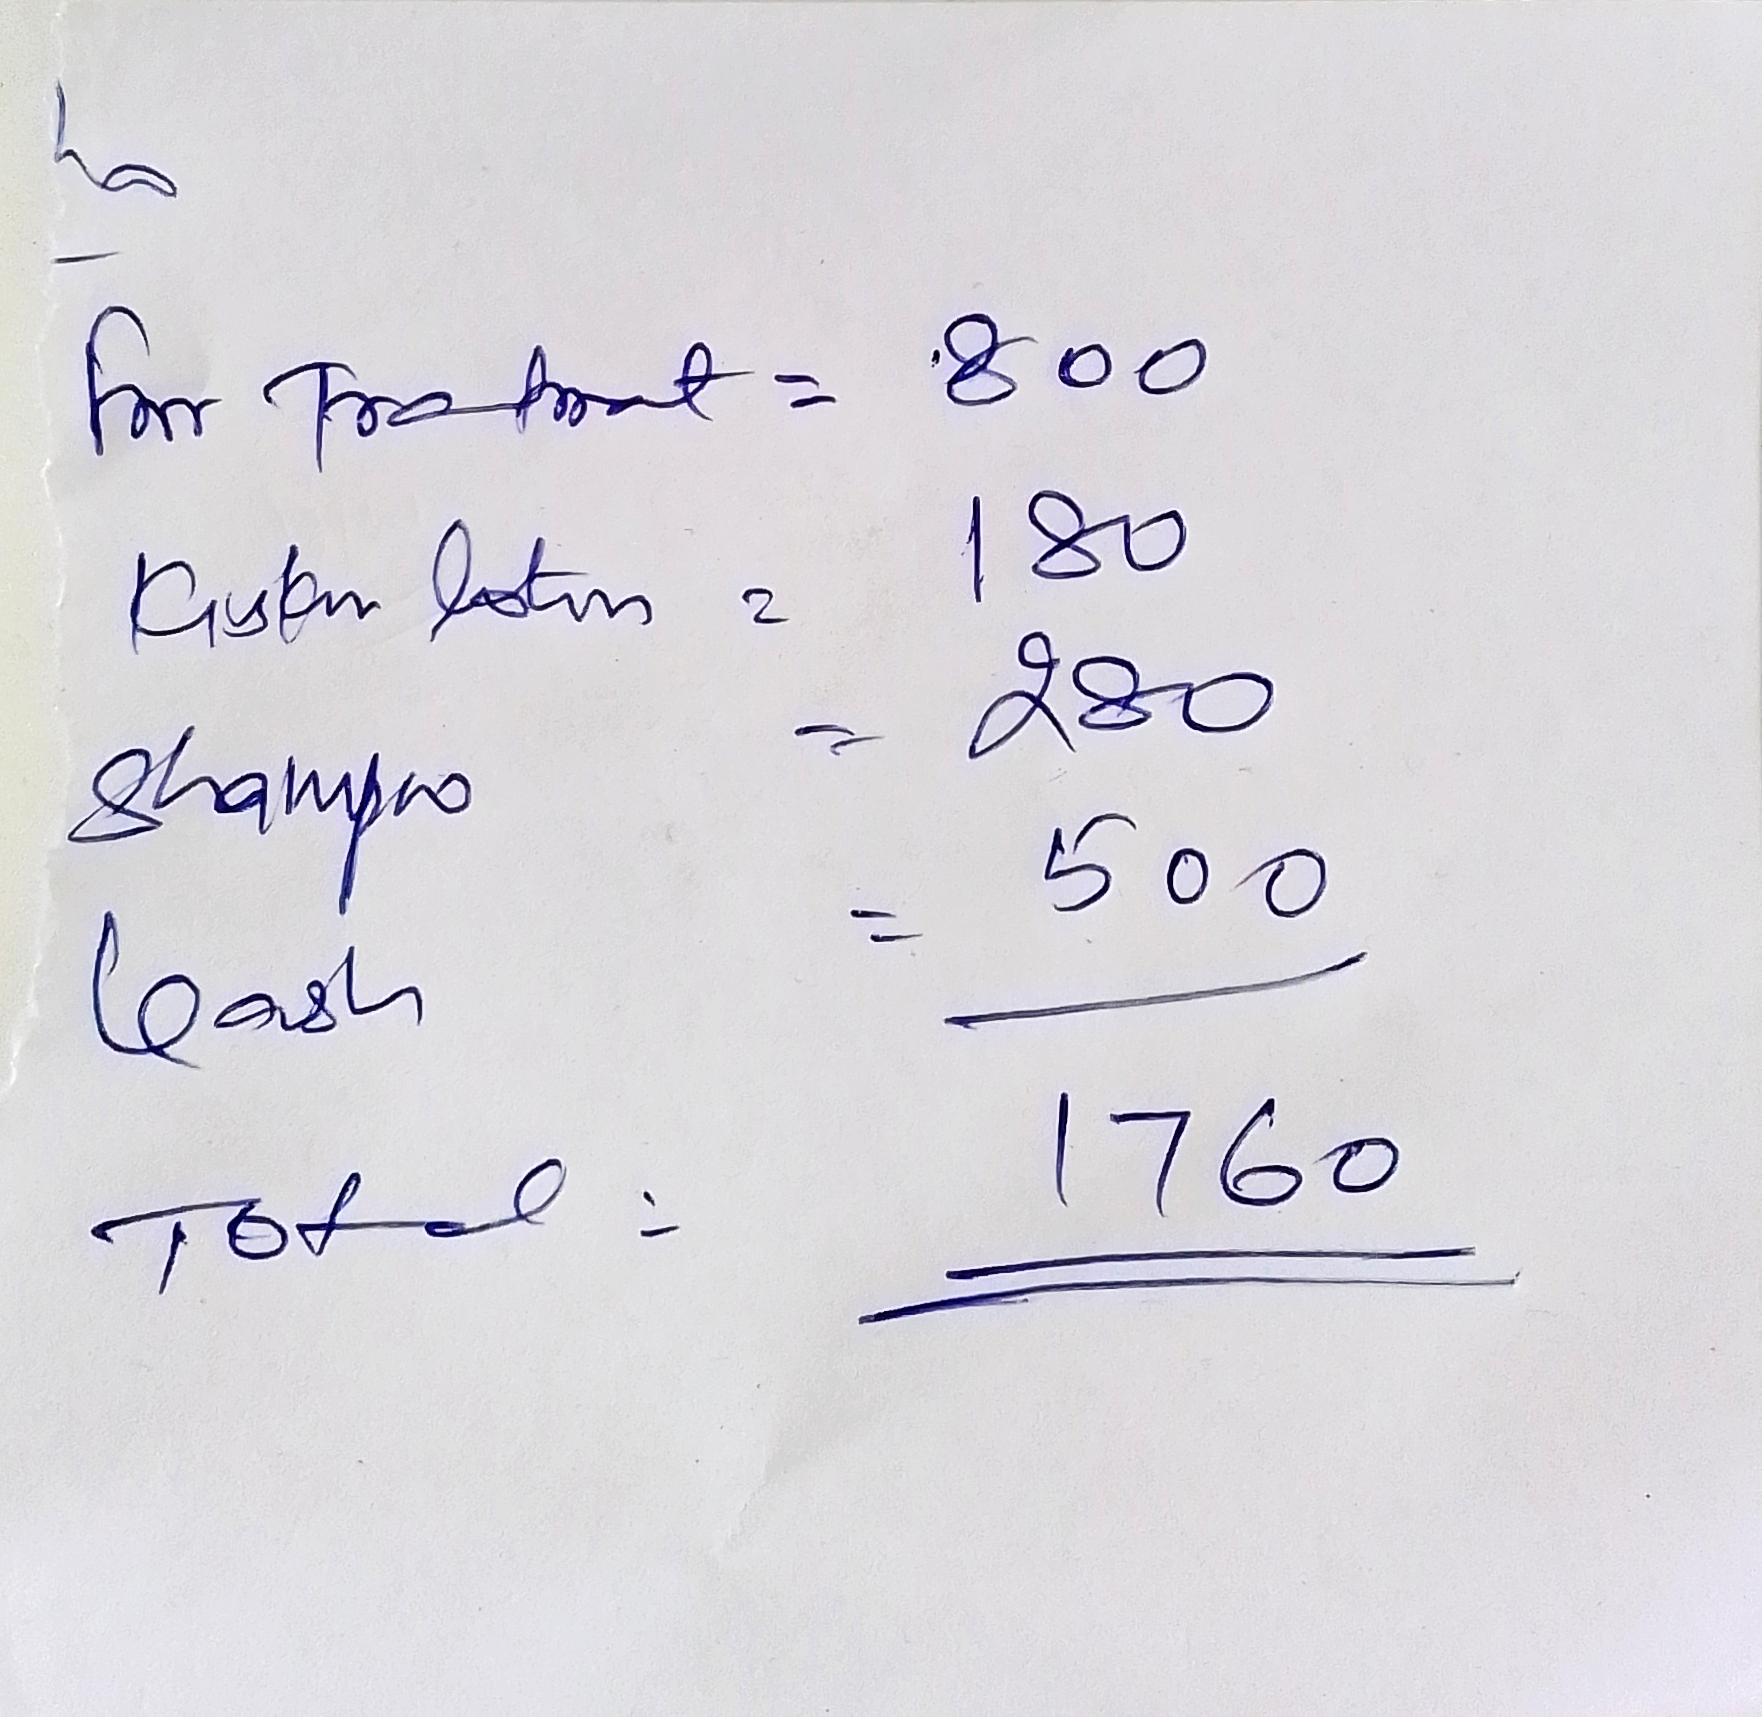 for Treatment = 800
lotion = 180
Shampoo = 280
Leash = 500
Total = 1760